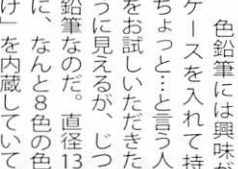 色鉛筆には興味が
ケースを入れて持
ちょっと…と言う人
をお試しいただきた
うに見えるが、じつ
鉛筆なのだ。直径13
に、なんと8色の色
け」を内蔵していて